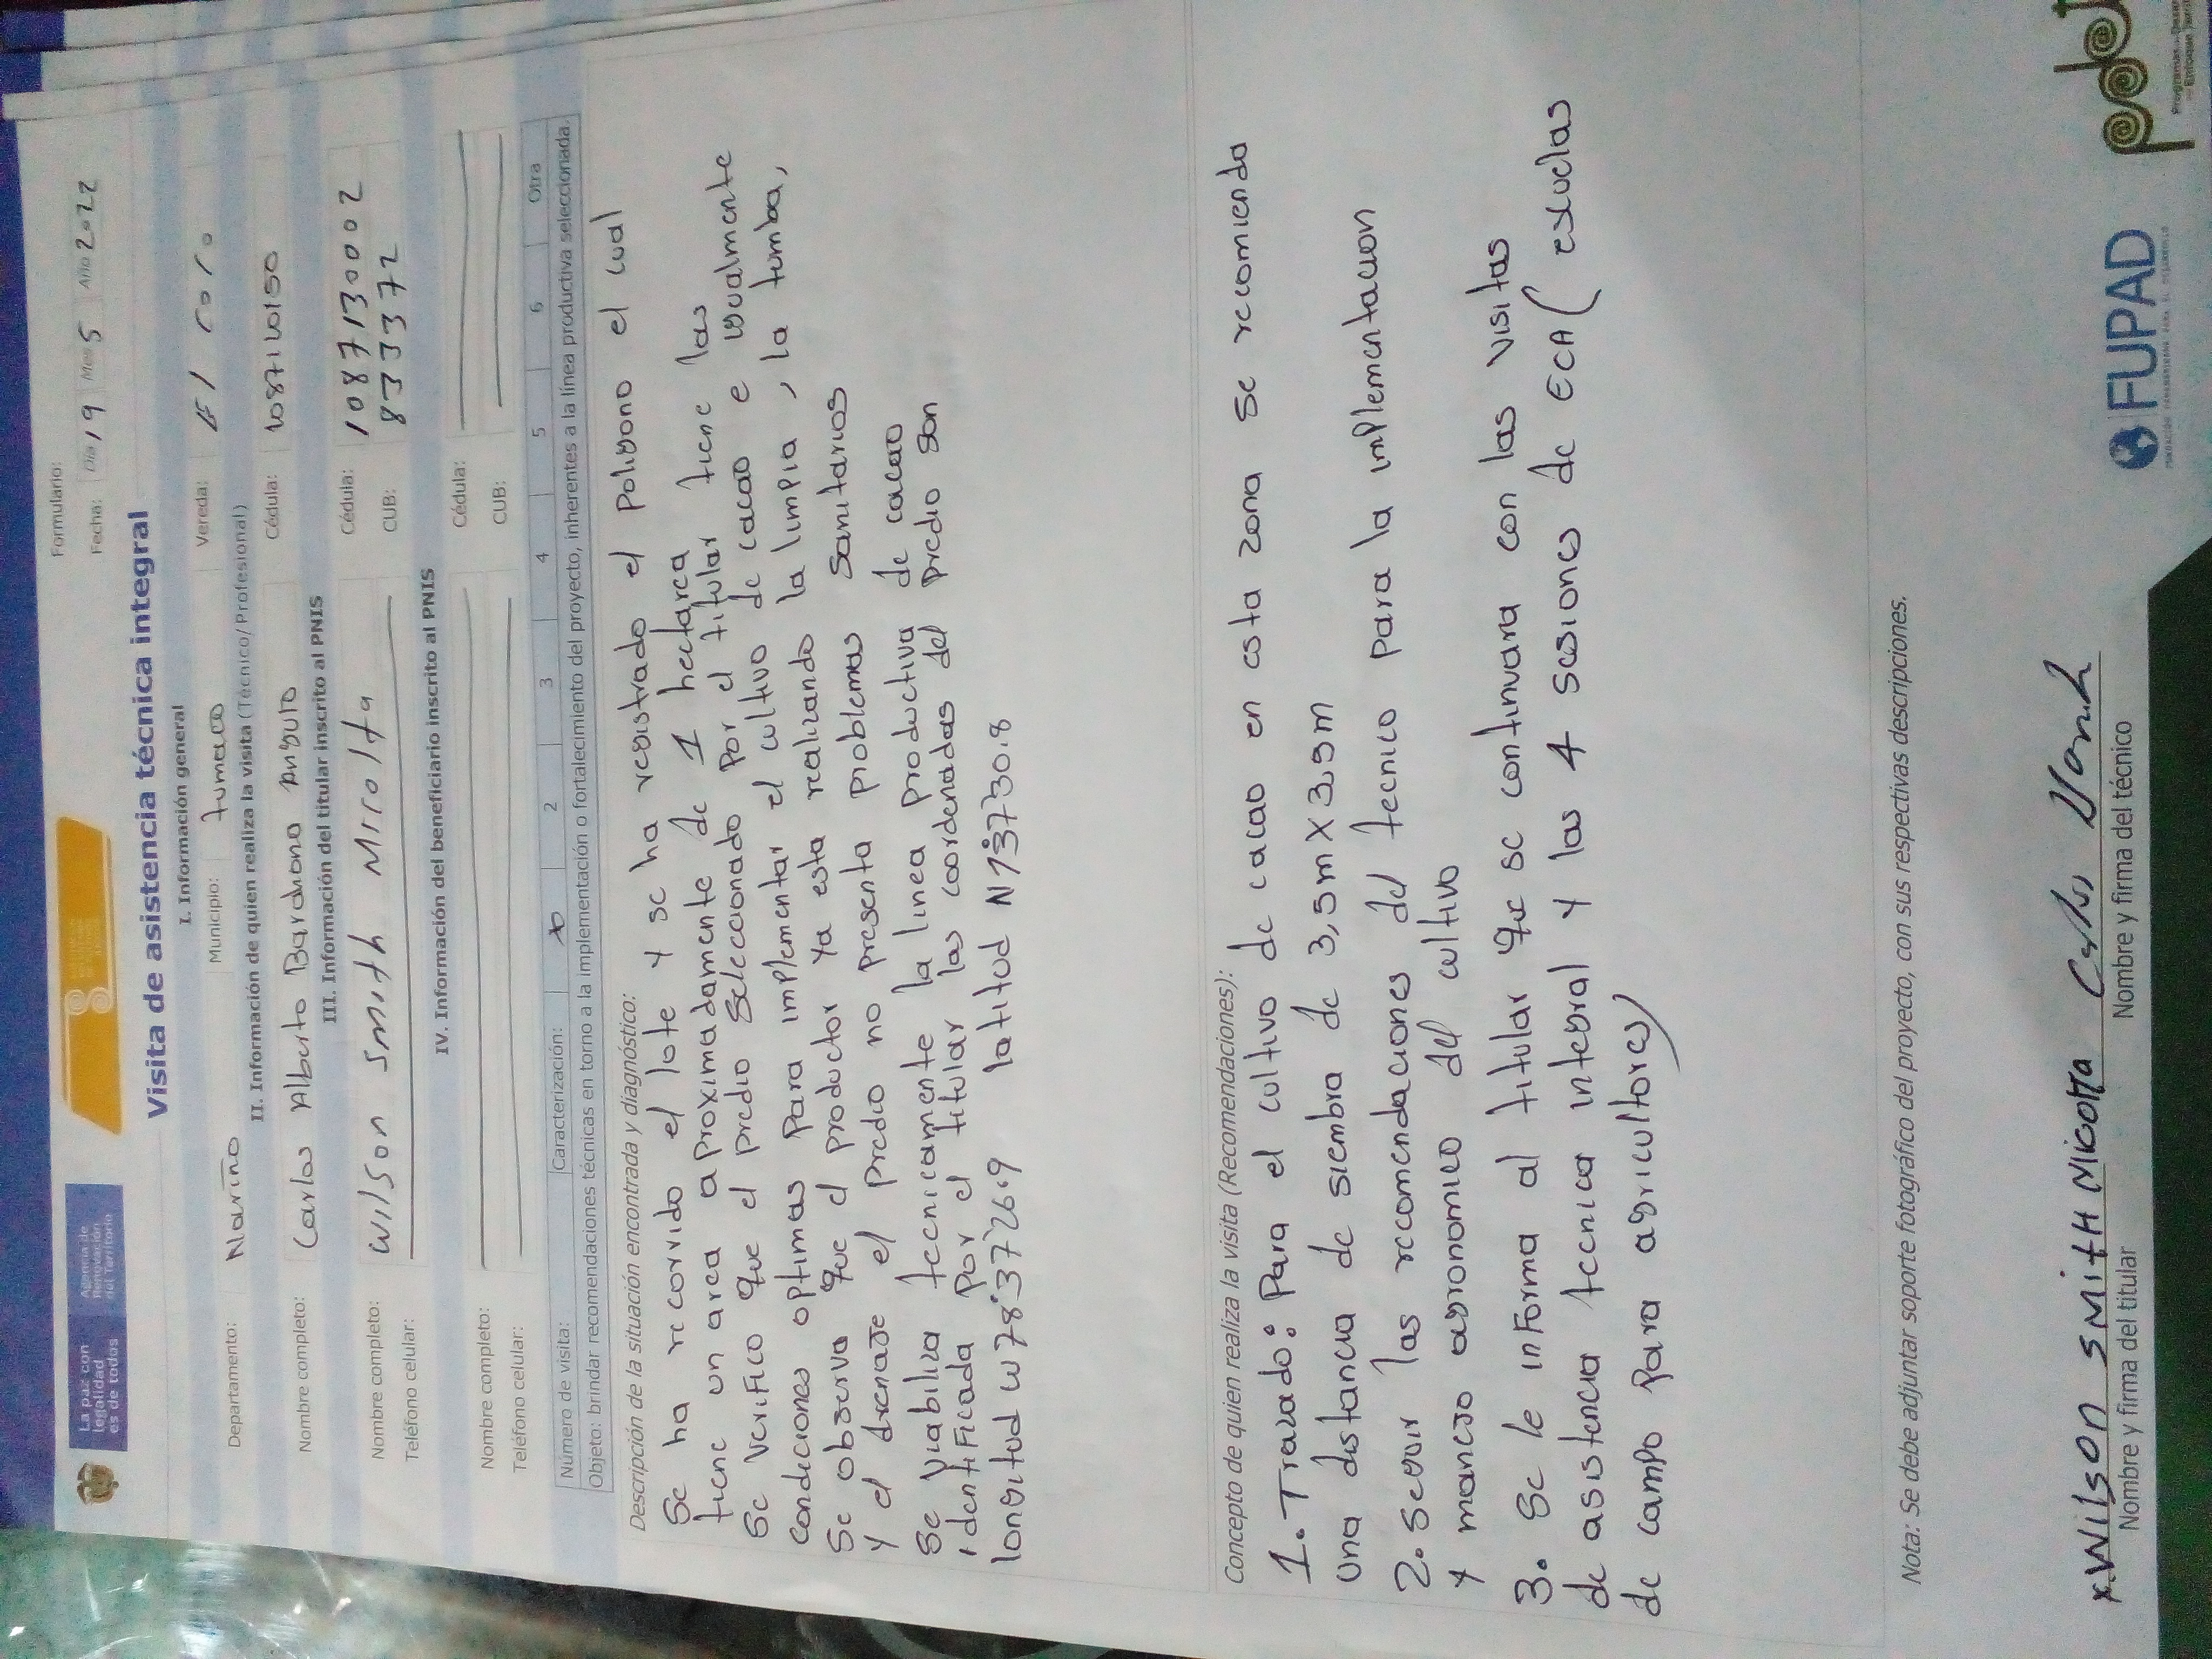 La paz con
legalidad
es de todos
Agencia de
Renovación
del Territorio
Formulario:
Fecha: Día 19 Mes 5 Año 2022
Visita de asistencia técnica integral
I. Información general
Departamento: Nariño Municipio: tumaco Vereda: El Coro
II. Información de quien realiza la visita (Técnico/ Profesional)
Nombre completo: Carlos Alberto Bardnono Angulo Cédula:
III. Información del titular inscrito al PNIS
Nombre completo: Wilson Smith Micolta Cédula: 1087130002
Teléfono celular: CUB: 8333372
IV. Información del beneficiario inscrito al PNIS
Nombre completo: Cédula:
Teléfono celular: CUB:
Número de visita: Caracterización: X 2 3 4 5 6 Otra
Objeto: brindar recomendaciones técnicas en torno a la implementación o fortalecimiento del proyecto, inherentes a la línea productiva seleccionada.
Descripción de la situación encontrada y diagnóstico:
Se ha recorrido el lote y se ha registrado el Poligono el cual
tiene un area aproximadamente de 1 hectarea
Se verifico que el predio seleccionado Por el titular tiene las
condiciones optimas Para implementar el cultivo de cacao e igualmente
Se observa que el productor ya esta realizando la limpia, la tumba,
y el drenaje el predio no presenta problemas Sanitarios
Se viabiliza tecnicamente la linea productiva de cacao
identificada Por el titular las coordenadas del predio son
longitud W78°37'26.9 latitud N1°37'30.8
Concepto de quien realiza la visita (Recomendaciones):
1. Trazado: Para el cultivo de cacao en esta zona se recomienda
una distancia de siembra de 3,5m X 3,5m
2. Seguir las recomendaciones del tecnico para la implementacion
y manejo agronomico del cultivo
3. Se le informa al titular que se continuara con las visitas
de asistencia tecnica integral y las 4 sesiones de ECA (escuelas
de campo para agricultores)
Nota: Se debe adjuntar soporte fotográfico del proyecto, con sus respectivas descripciones.
x Wilson SMitH Micolta
Nombre y firma del titular
Nombre y firma del técnico
FUPAD
pdet